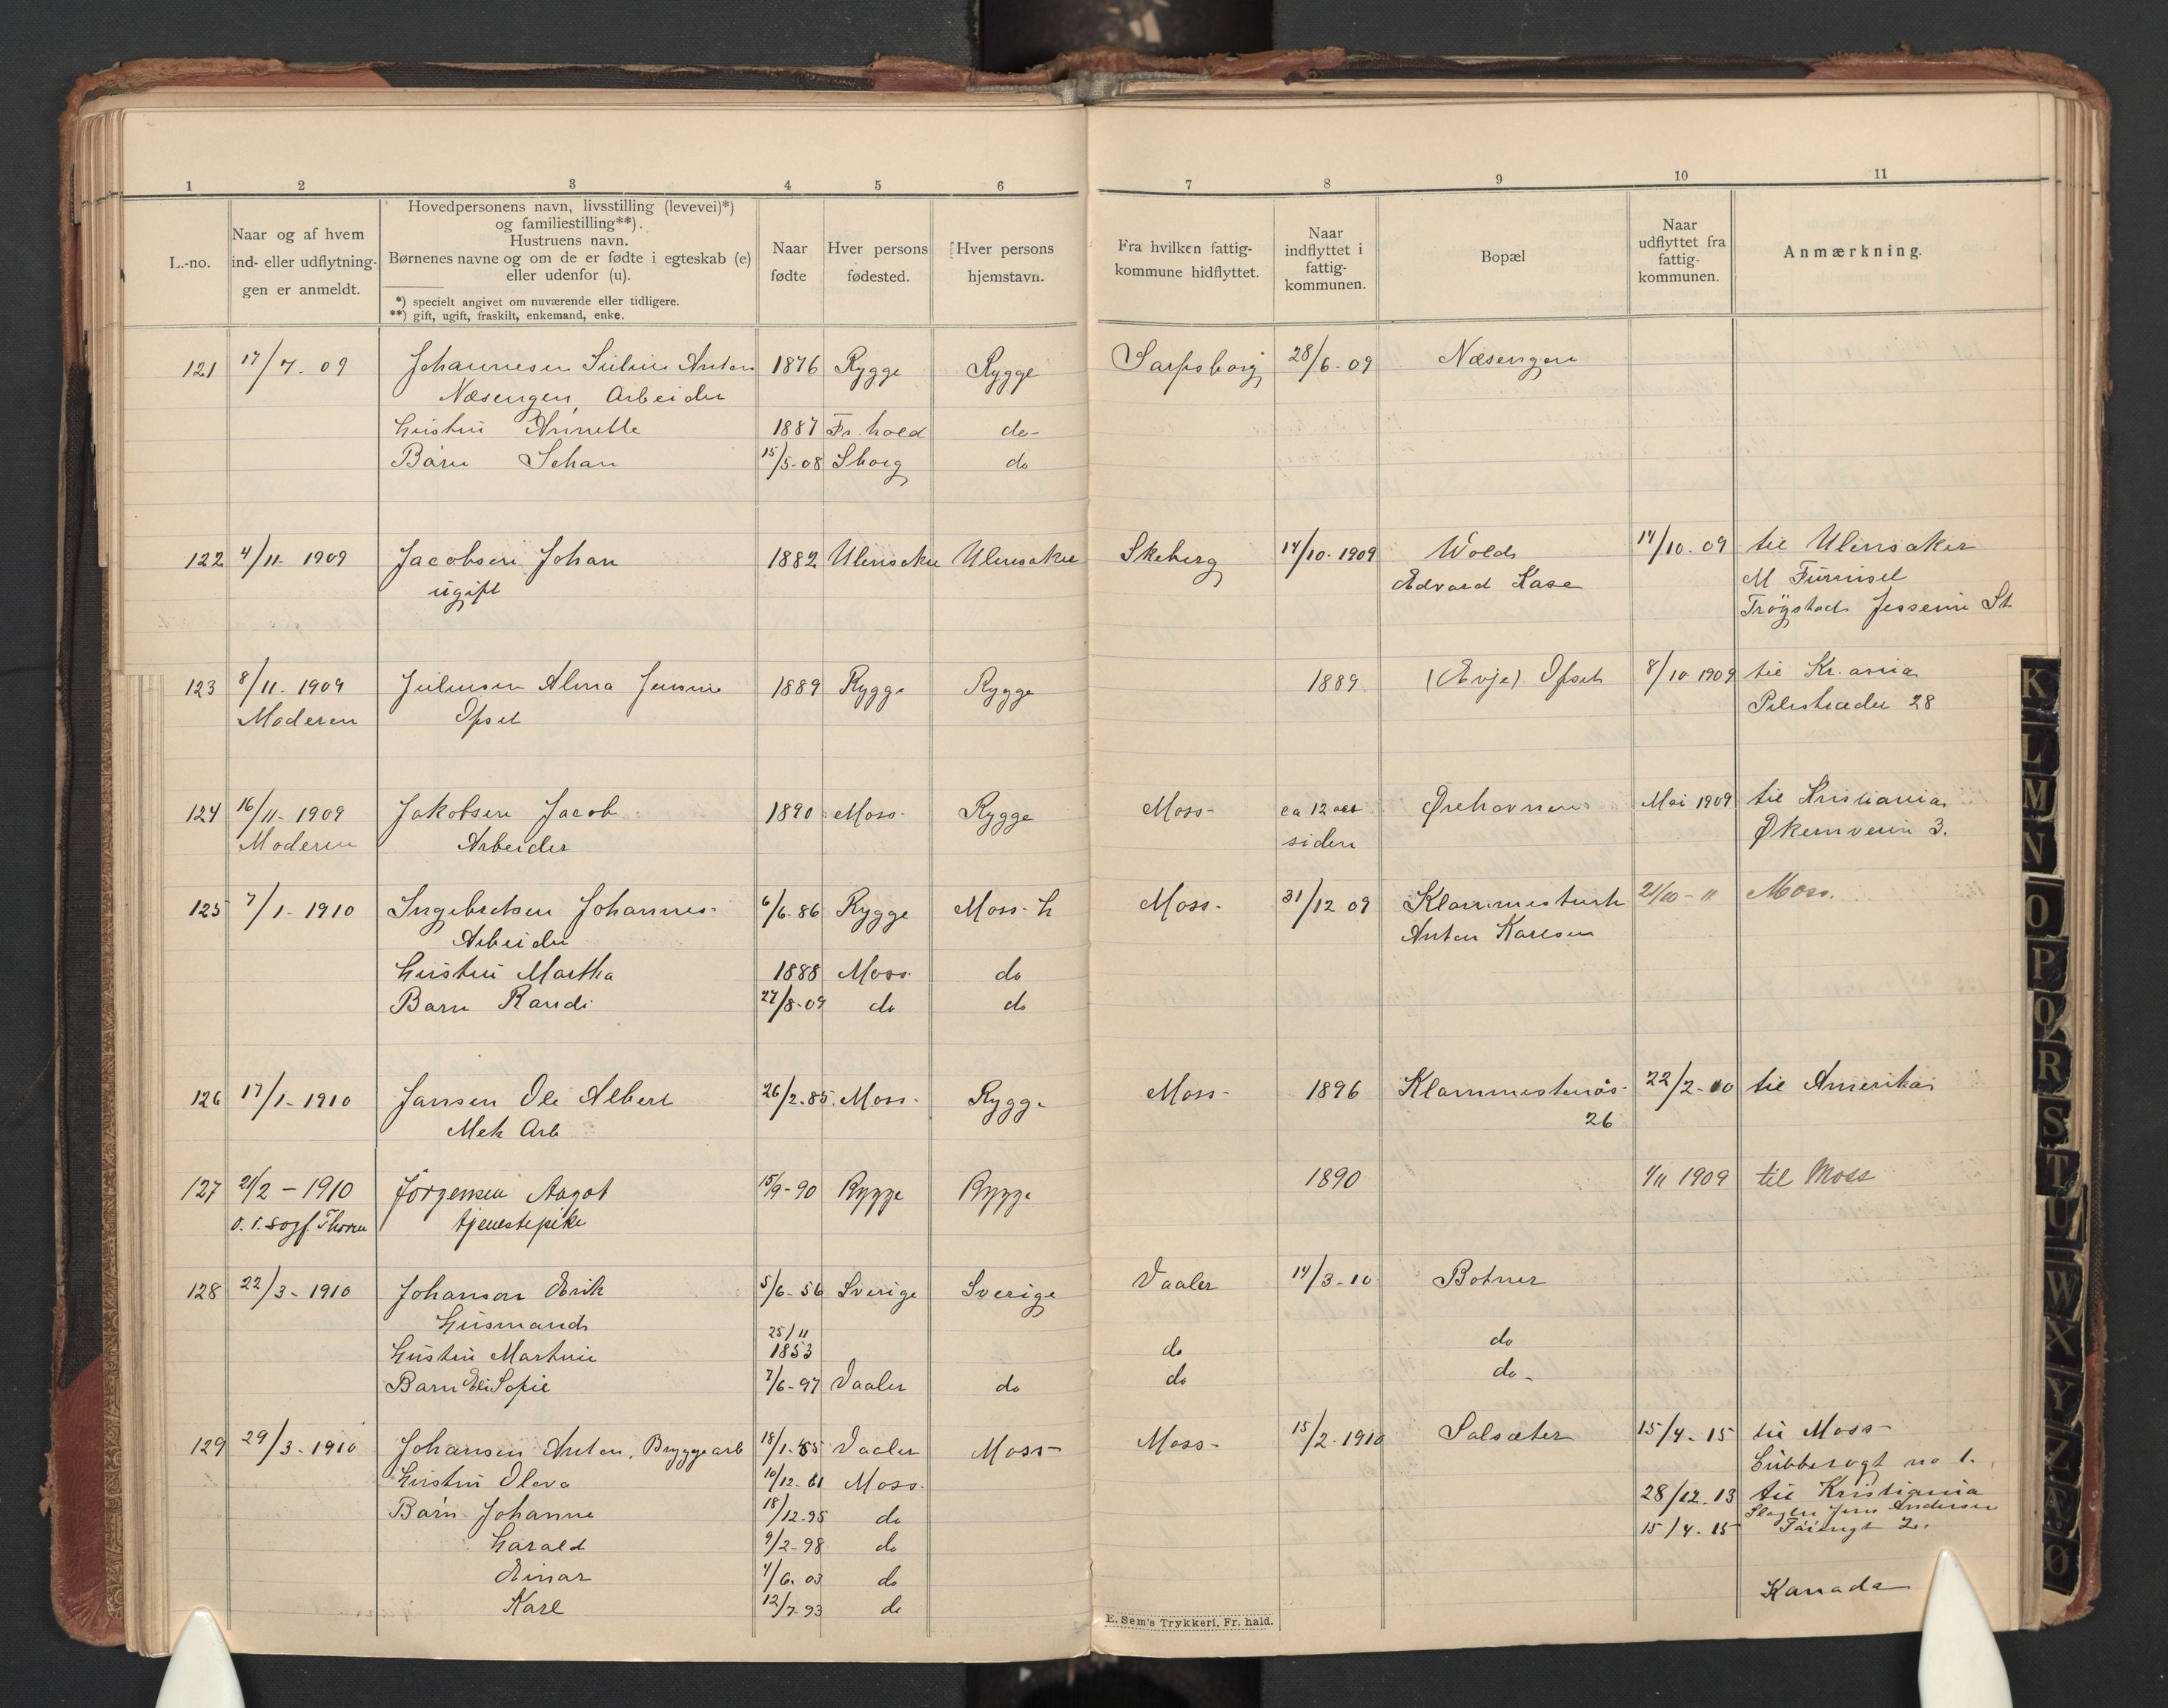 1 2 3 4 5 6 7 8 9 10 11
L.-no.
Naar og af hvem
ind- eller udflytnin-
gen er anmeldt.
Hovedpersonens navn, livsstilling (levevei)*)
og familiestilling**).
Hustruens navn.
Børnenes navne og om de er fødte i egteskab (e)
eller udenfor (u).
*) specielt angivet om nuværende eller tidligere.
**) gift, ugift, fraskilt, enkemand, enke.
Naar
fødte
Hver persons
fødested.
Hver persons
hjemstavn.
Fra hvilken fattig-
kommune hidflyttet.
Naar
indflyttet i
fattig-
kommunen.
Bopæl
Naar
udflyttet fra
fattig-
kommunen.
Anmærkning.
121 17/7. 09 Johannesen Julius Anton 1876 Rygge Rygge Sarpsborg 28/6-09 Næsengen
Næsengen, Arbeider
Hustru Annette 1887 Fr.hald do-
Barn Johan 15/5-08 Sborg do
122 4/11. 1909 Jacobsen Johan 1882 Ulensaker Ulensaker Skeberg 14/10-1909 Wold 14/10-09 til Ulensaker
ugift Edvard Kase M Furuset
Trøgstad Jessenin St
123 8/11. 1909 Julensen Alma Jensine 1889 Rygge Rygge 1889 (Evje) Opset 8/10 1909 til Kr.ania
Moderen Opset Pilestrædet 28
124 16/11-1909 Jakobsen Jacob 1890 Moss- Rygge Moss- ca 12 aar Ørehavnen Mai 1909 til Kristiania
Moderen Arbeider siden Økernveien 3.
125 7/1-1910 Ingebretsen Johannes- 6/6-86 Rygge Moss-h Moss- 31/12 09 Klommestenh 21/10-11 Moss.
Arbeider Anton Karlsen
Hustru Martha 1888 Moss do
Barn Randi 27/8-09 do do
126 17/1-1910 Jansen Ole Albert 26/2-85 Moss- Rygge Moss- 1896 Klommestenås- 22/2-10 til Amerika
Mek Arb 26
127 21/2-1910 Jörgensen Aagot 15/9-90 Rygge Rygge 1890 1/11 1909 til Moss
o.r.sagf. Thorne tjenestepike
128 22/3-1910 Johanson Erik 5/6-56 Sverige Sverige Vaaler 14/3-10 Botner
Husmand
25/11
Hustru Martine 1853 do do
Barn Eli Sofie 7/6-97 Vaaler do do do-
129 29/3-1910 Johansen Anton, Bryggearb 18/1-55 Vaaler Moss- Moss- 15/2-1910 Solsæter 15/4-15 til Moss-
Hustru Olava 10/12-61 Moss. Lübbesogt no 1.
Barn Johanne 18/12-95 do 28/12-13 til Kristiania
Slagter Jens Andersen
15/4-15 2.
Harald 9/2-98 do
Einar 4/6.03 do
Kanada
Karl 12/7-93 do
E. Sem's Trykkeri, Fr. hald.
K
L
M
N
O
P
Q
R
S
T
U
W
X
Y
Z
Ø